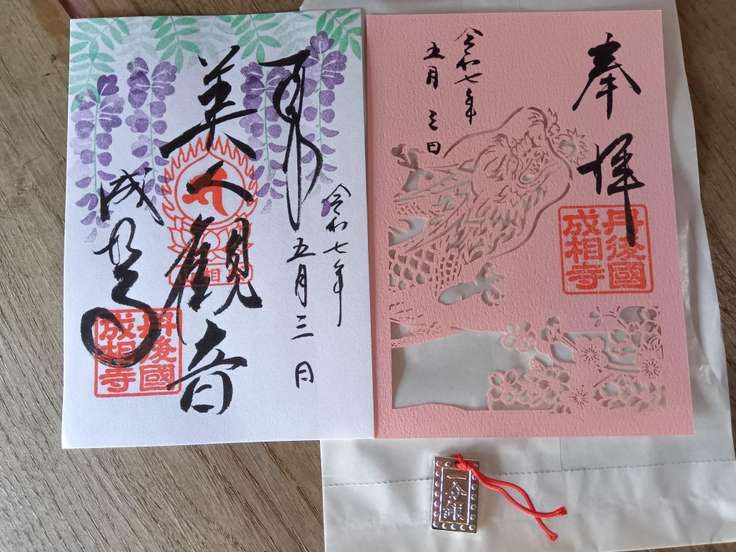 奉拝
令和七年
五月三日
美人觀音
丹後國
成相寺
奉拝
令和七年
五月三日
丹後國
成相寺
一分銀